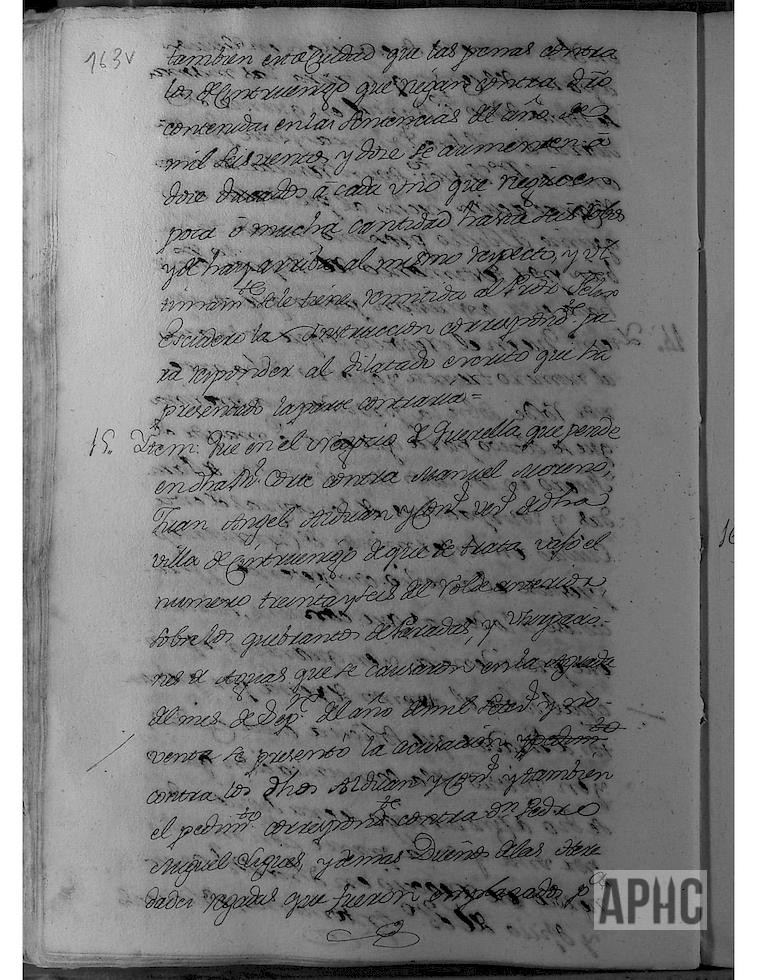 163v
tambien esta Ciudad que las penas contra
los de Cintruenigo que riegan contra dro
contenidas en las sentencias del año de
mil seis cientos y doze se aumenten à
doze ducados à cada uno que regase en
poca ò mucha cantidad hasta seis
y de hay arriba al mismo respecto, y ul
timam.te se le tiene remitida al Procr
Escudero la Instruccion correspond.te pa
ra responder al dilatado escrito que ha
presentado la parte contraria =
15. Item. Que en el negocio de Querella, que pende
en dha R.l Corte contra Manuel Moreno,
Juan Angel Alduan y Con.s vez.s de dha
villa de Cintruenigo de que se trata vajo el
numero treinta y seis del Rolde anterior,
sobre los quebrantos de Paradas, y Usurpacio-
nes de Aguas que se causaron en la Aguada
del mes de Sep.re del año de mil setez.s y no-
venta se presentò la acusacion
contra los dhos Alduan y Con.s y tambien
el pedim.to correspond.te contra Dn. Pedro
Miguel Ligues, y demas Dueños de las Here
dades regadas que fueron emplazados p.a
APHC